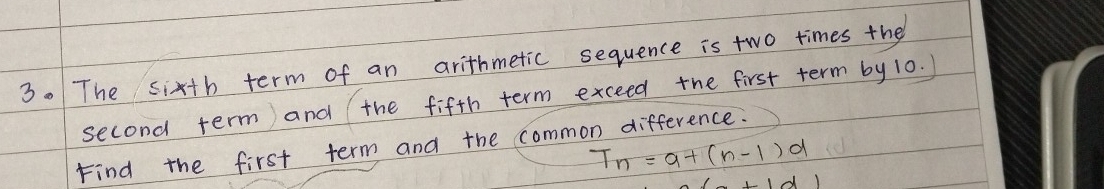 3. The sixth term of an arithmetic sequence is two times the
second term and the fifth term exceed the first term by 10.
Find the first term and the common difference.
Tn = a+(n-1)d